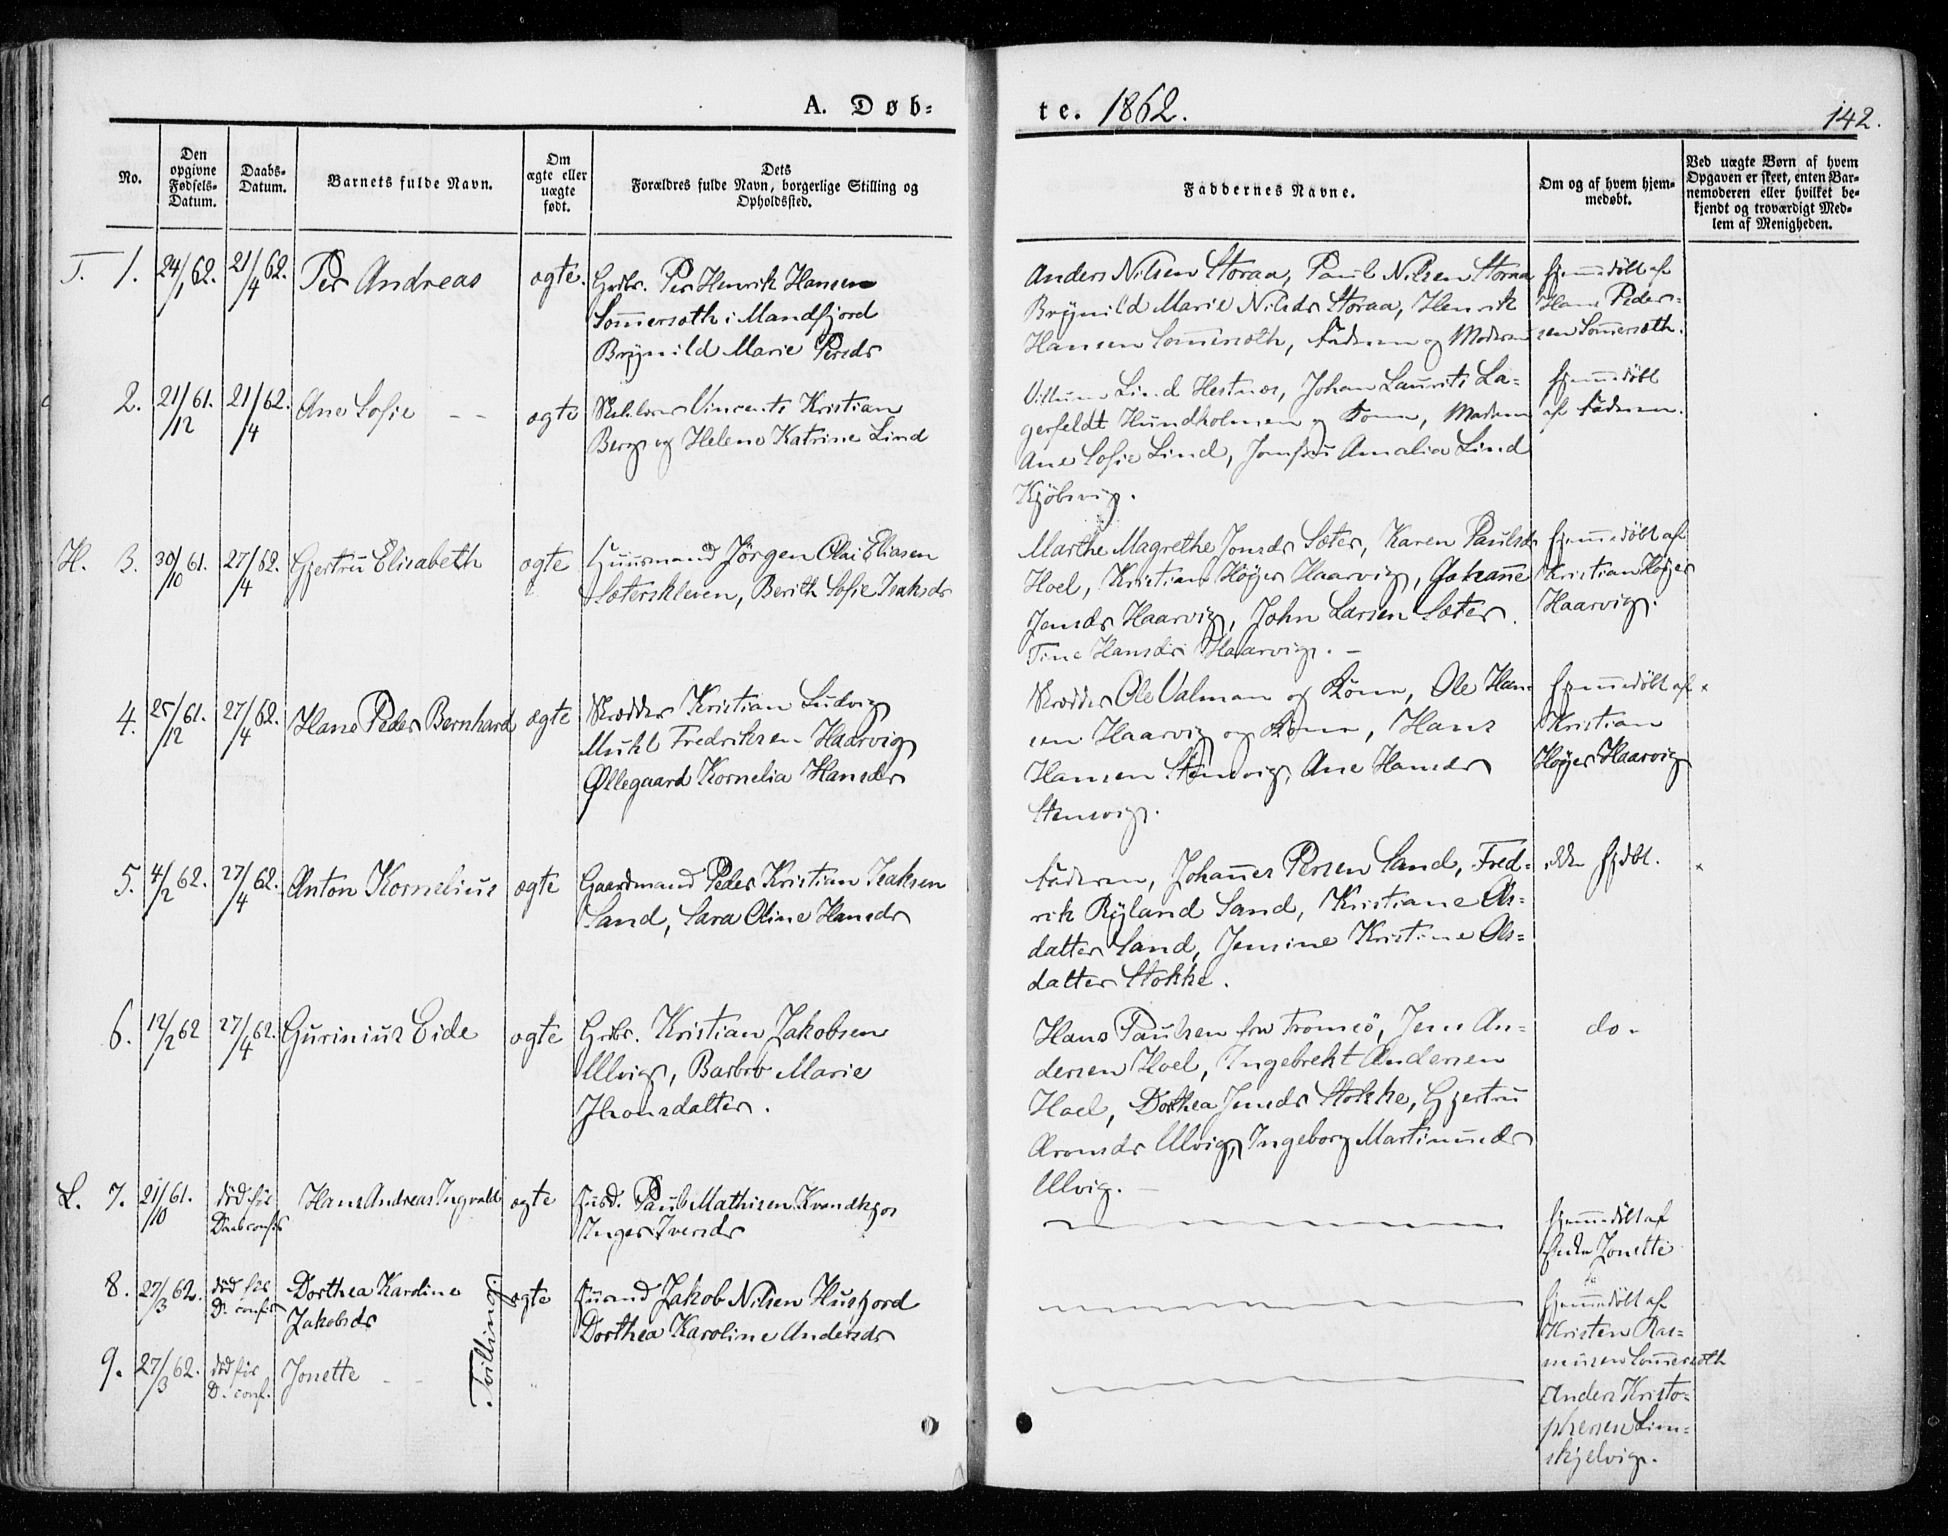 A. Døb-
te. 1862.
142.
No.
Den opgivne Fødsels-Datum.
Daabs-Datum.
Barnets fulde Navn.
Om ægte eller uægte født.
Dets Forældres fulde Navn, borgerlige Stilling og Opholdssted.
Faddernes Navne.
Om og af hvem hjem-medøbt.
Ved uægte Børn af hvem Opgaven er skeet, enten Bar-nemoderen eller hvilket be-kjendt og troværdigt Med-lem af Menigheden.
T. 1. 24/1 62. 21/4 62. Per Andreas ægte. Grbr. Per Henrik Hansen
Sommersæth i Mandfjord
Brynild Marie Persdr
Anders Nilsen Storaa, Paul Nilsen Storaa
Brynild Marie Nilsdr Storaa, Henrik
Hansen Sommersæth, Faderen og Moderen
Hjemmedøbt af
Hans Peder-
sen Sommersæth.
2. 21/12 61. 21/4 62. Ane Sofie - - ægte Vincents Kristian
Berg og Helene Katrine Lind
Villum Lind Hestnæs, Johan Laurits La-
gerfeldt Hundholmen og Kone, Madam
Ane Sofie Lind, Jomfru Amalia Lind
Kjöbsvig.
Hjemmedöbt
af Faderen.
H. 3. 30/10 61. 27/4 62. Gjertru Elisabeth ægte Huusmand Jörgen Olai Eliasen
Sæterskleven, Berith Sofie Isaksdr
Marthe Magrethe Jonsdr Sæter, Karen Paulsdr
Hoel, Kristian Höyer Haarvig, Johanne
Jensdr Haarvig, John Larsen Sæter.
Tine Hansdr Haarvig. -
Hjemmedöbt af
Kristian Höyer
Haarvig.
4. 25/12 61. 27/4 62. Hans Peder Bernhard ægte Skrædder Kristian Ludvig
Muhl Fredriksen Haarvig
Øllegaard Kornelia Hansdr
Skrædder Ole Valman og Kone, Ole Han-
sen Haarvig og Kone, Hans
Hansen Stensvig, Ane Hansdr
Stensvig.
Hjemmedöbt af
Kristian
Höyer Haarvig
5. 4/2 62. 27/4 62. Anton Kornelius ægte Gaardmand Peder Kristian Isaksen
Sand, Sara Oline Hansdr
Faderen, Johannes Persen Sand, Fred-
rik Ryland Sand, Kristiane Ols-
datter Sand, Jensine Kristine Ols-
datter Stokke.
ikke Hjdbt.
6. 12/2 62 27/4 62. Gurinius Eide ægte Grbr. Kristian Jakobsen
Ulvig, Barbro Marie
Jhonsdatter.
Hans Paulsen fra Tromsö, Jens An-
dersen Hoel, Ingebrekt Andersen
Hoel, Dorthea Jensdr Stokke, Gjertru
Aronsdr Ulvig, Ingeborg Martinusdr
Ulvig. -
do.
L. 7. 21/10 61. död för
Daabconfir
Hans Andreas Ingvald ægte Paul Mathisen Kvandkjos
Inger Iversdr
Hjemmedöbt af
8. 27/3 62. död för
D. confir
Dorthea Karoline
Jakobsdr
ægte Jakob Nilsen Husfjord
Dorthea Karoline Andersdr
Hjemmedöbt af
Kristen Ras-
musen Sommersæth
9. 27/3 62. död för
D. conf.
Jonette
Tvillinger.
Anders Kristo-
phersen Lim-
skjelvig.